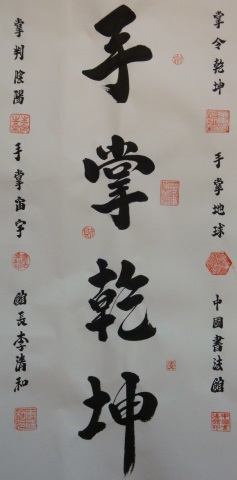 掌令乾坤
手掌地球
中國書法館
手掌乾坤
掌判陰陽
手掌宙宇
館長李清和